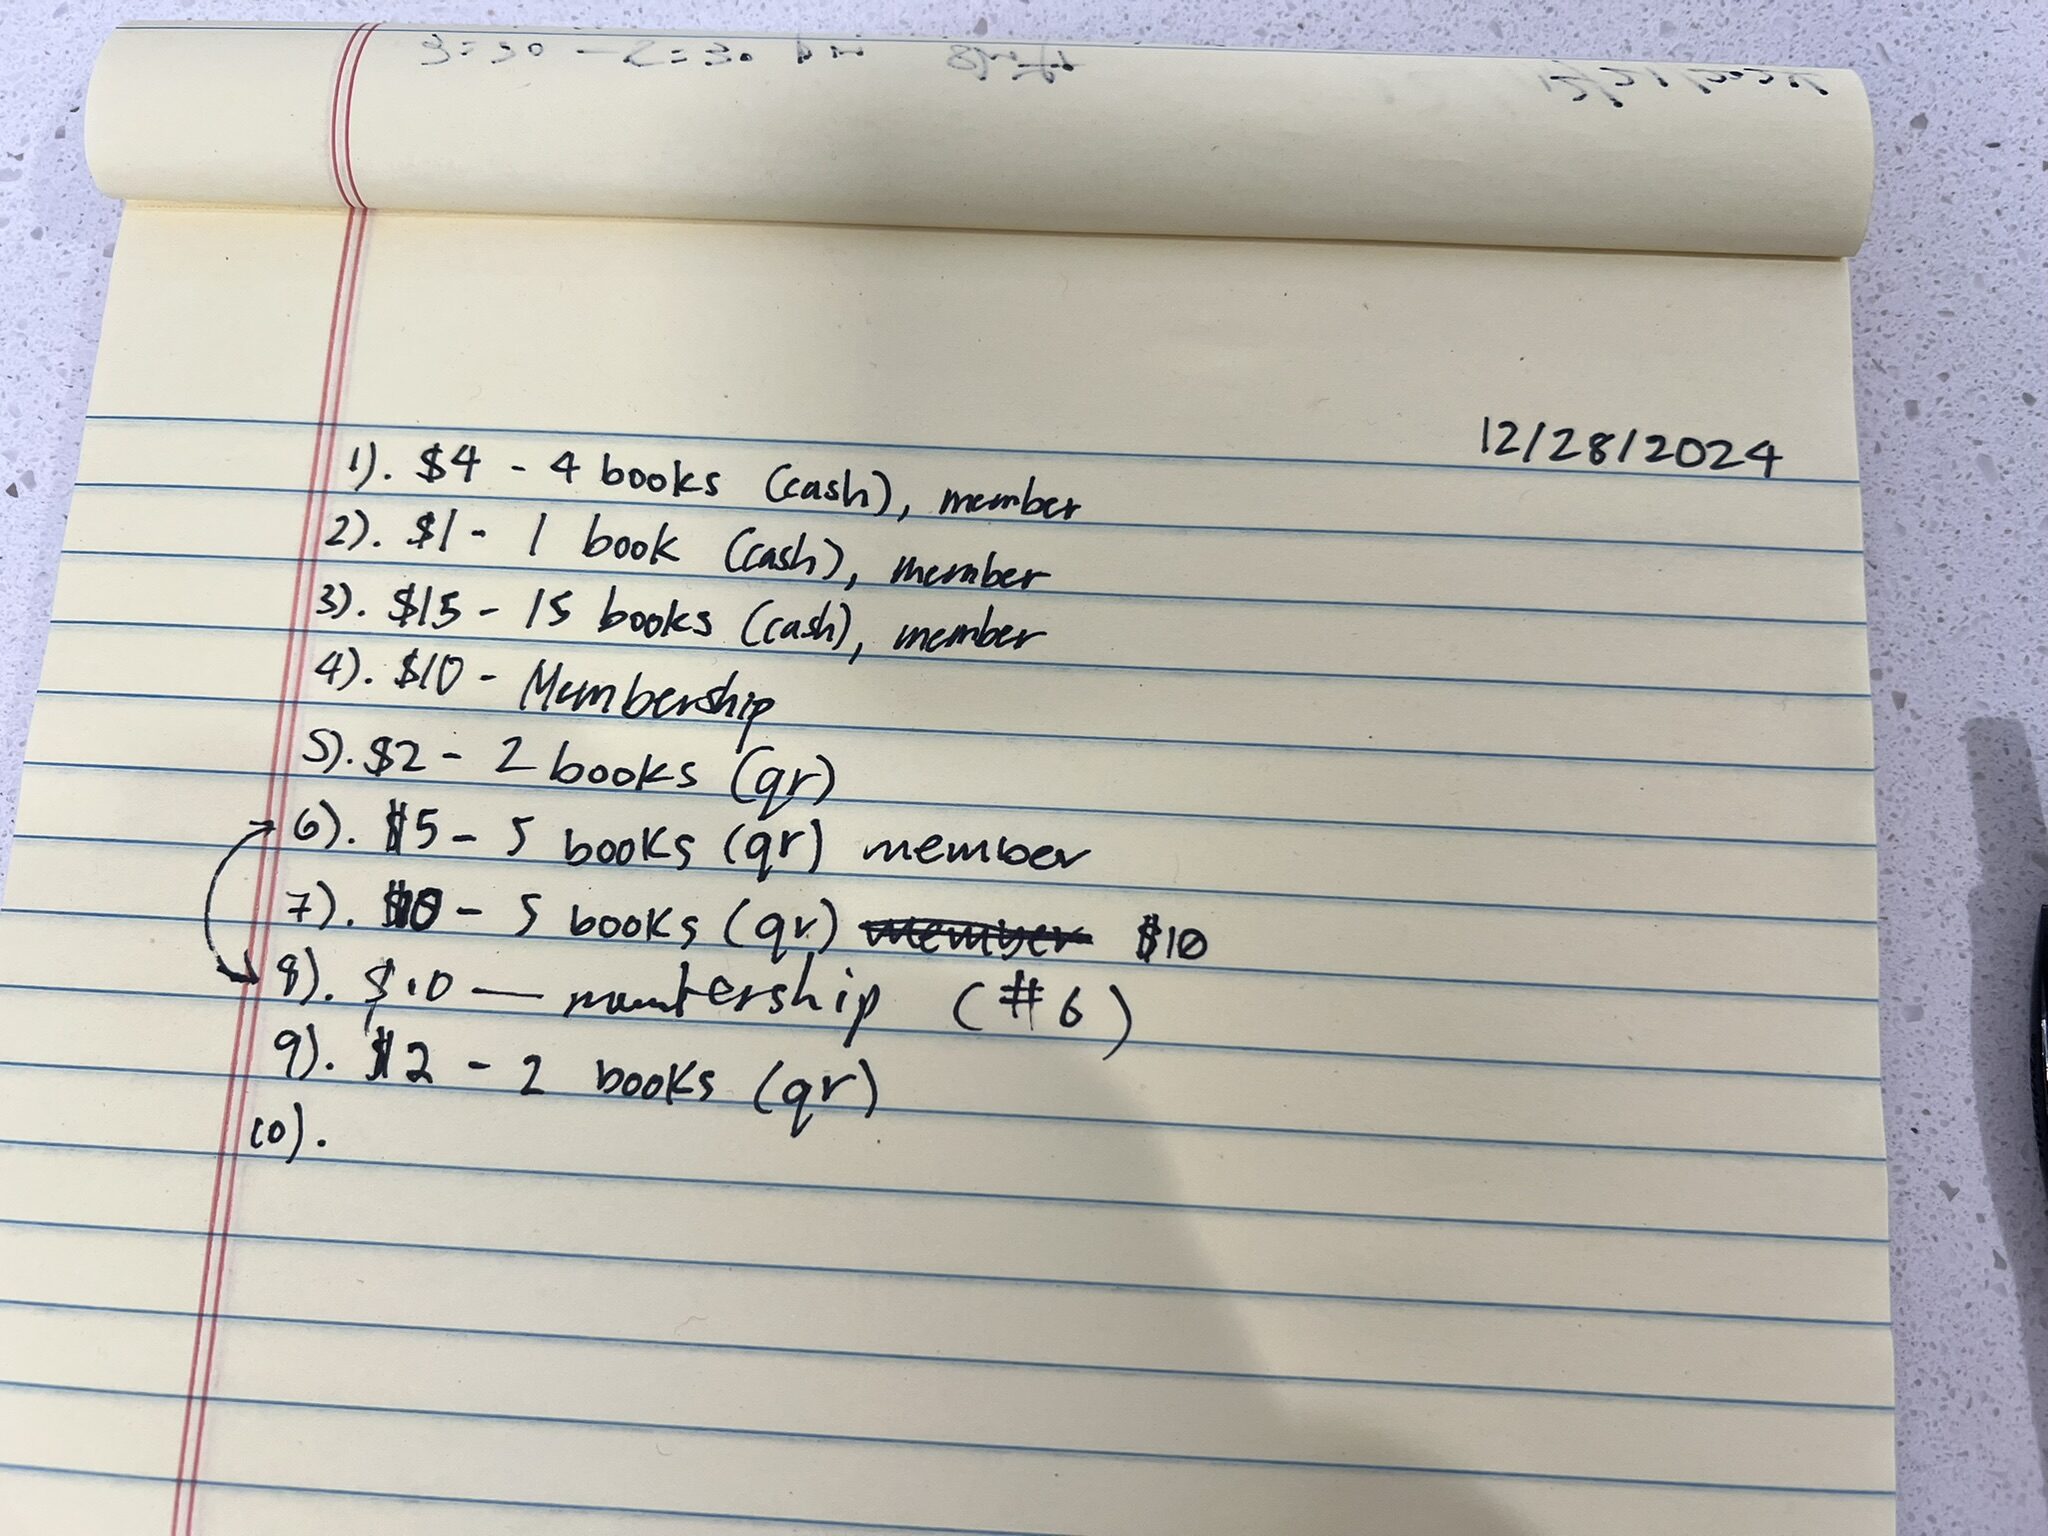 12/28/2024
1). $4 - 4 books (cash), member
2). $1 - 1 book (cash), member
3). $15 - 15 books (cash), member
4). $10 - Membership
5). $2 - 2 books (qr)
6). $5 - 5 books (qr) member
7). $10 - 5 books (qr) member $10
8). $10 — membership (#6)
9). $2 - 2 books (qr)
10).